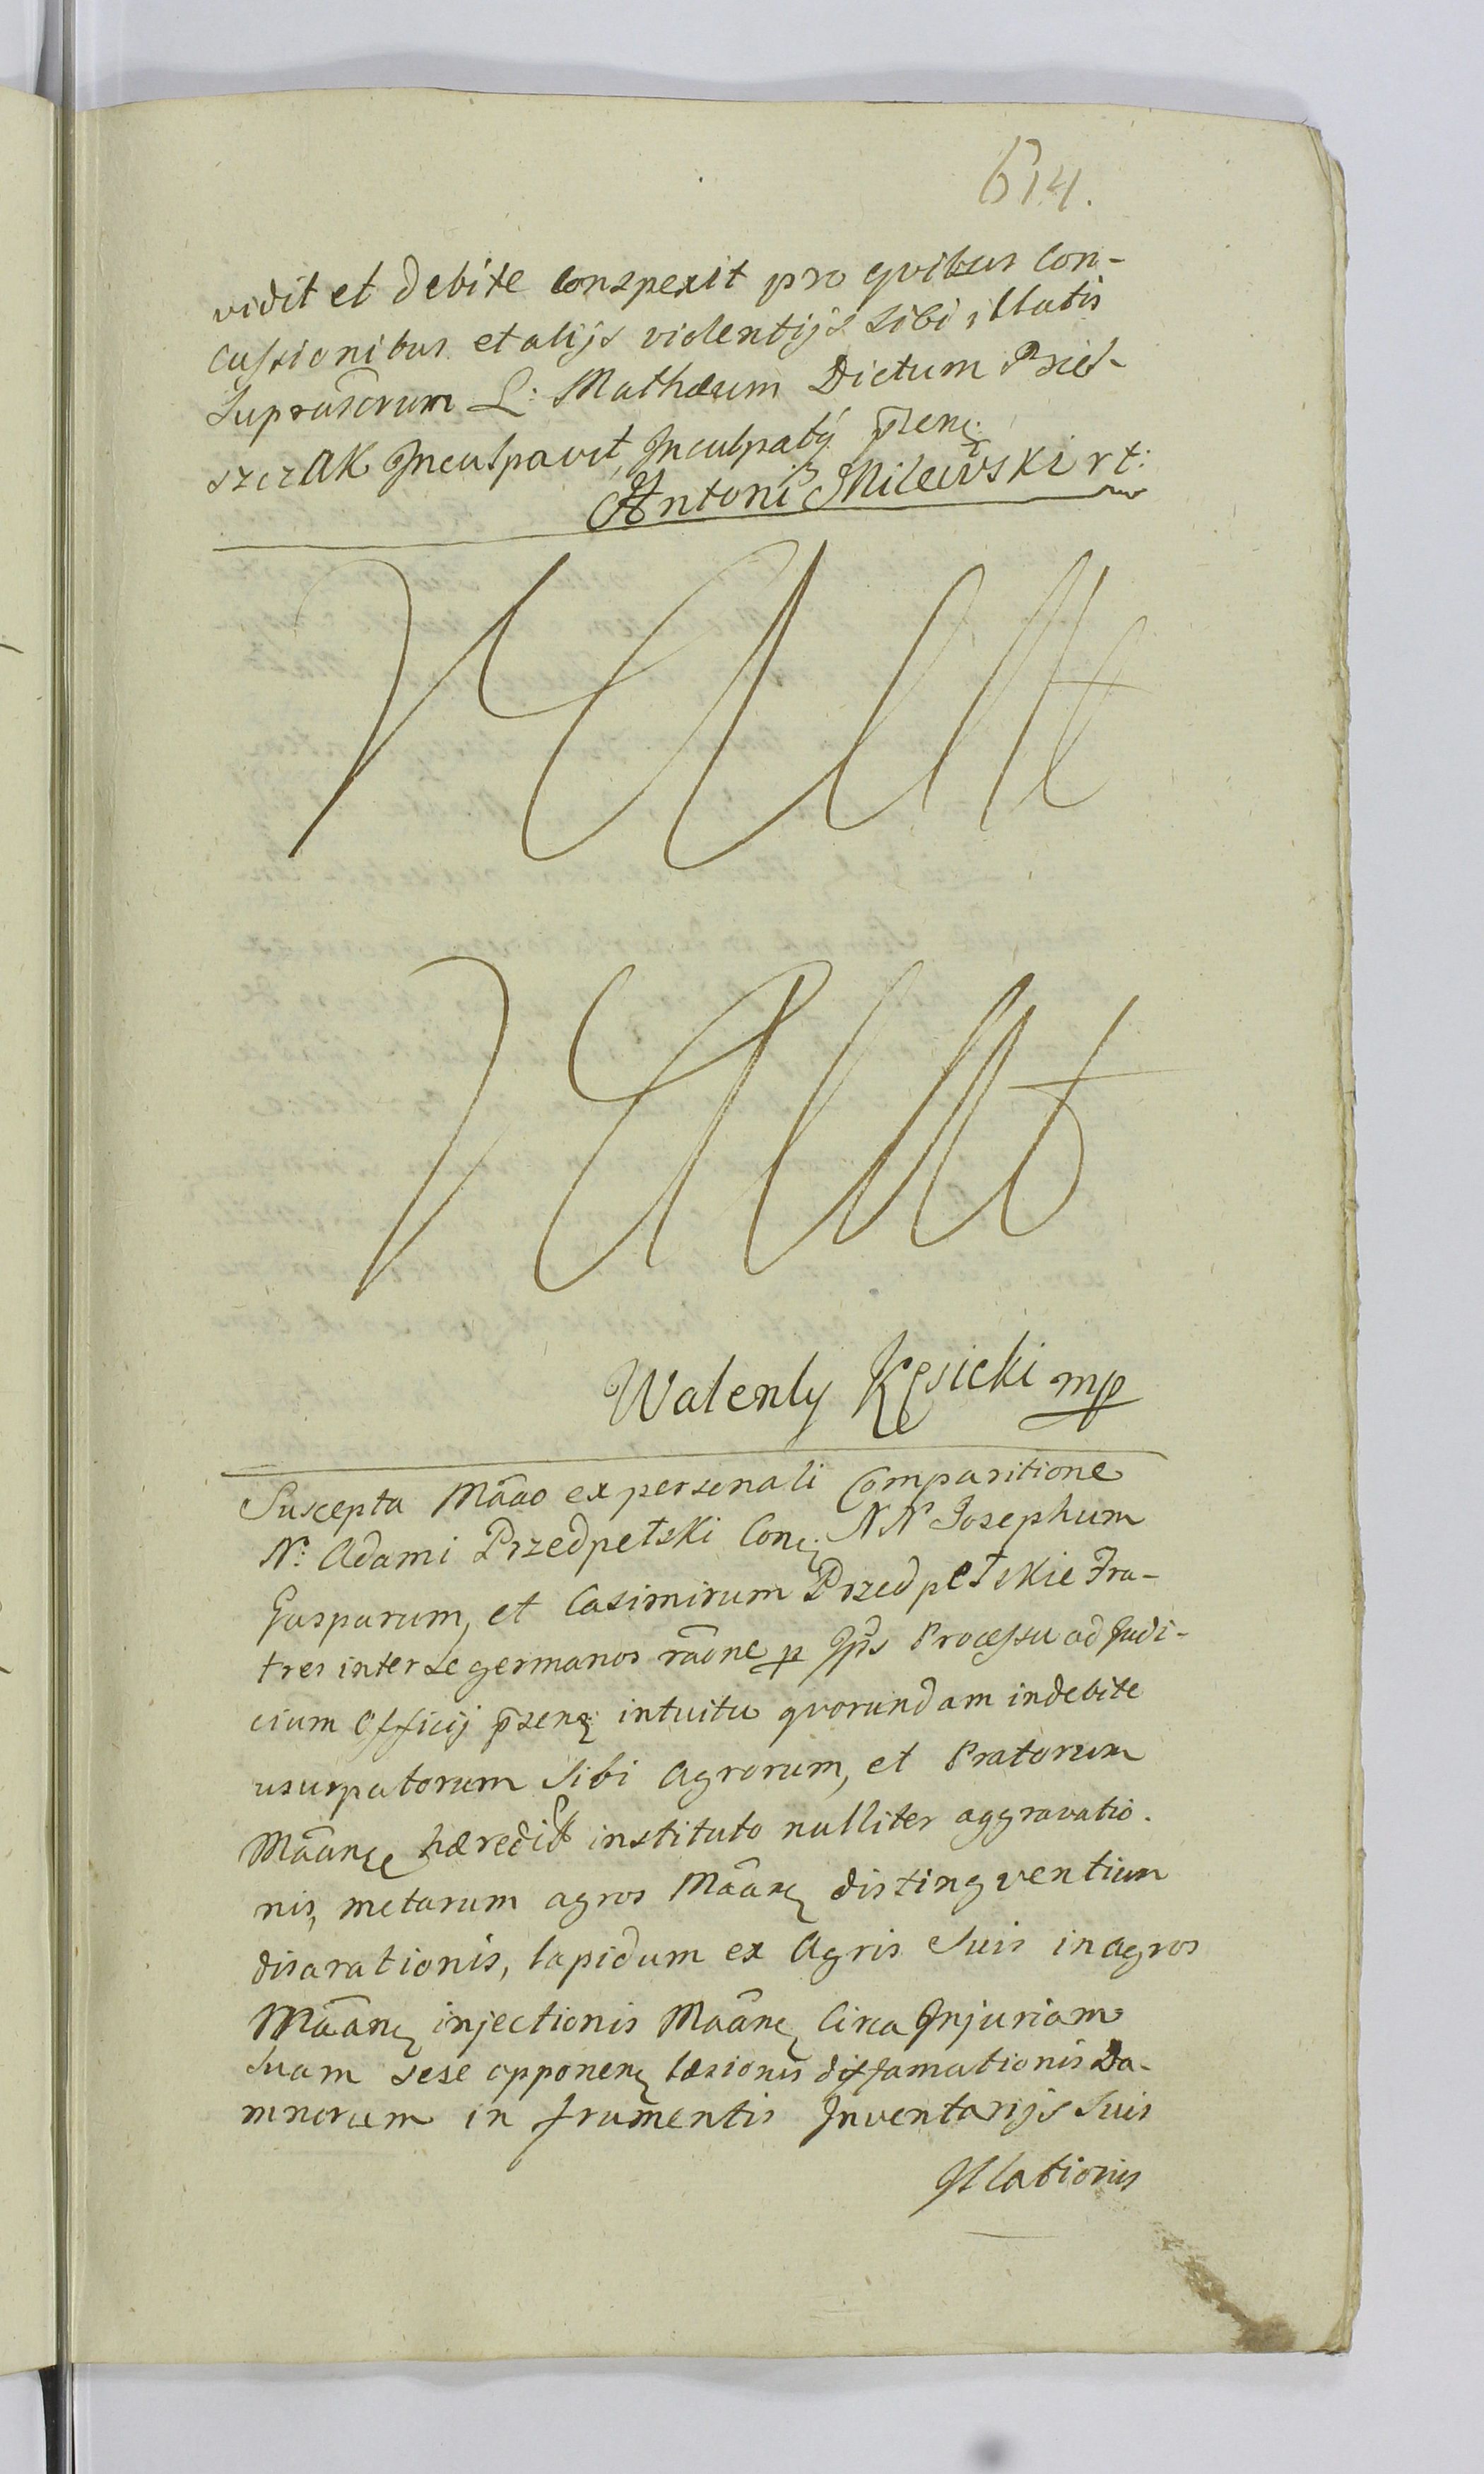 614.
vidit et debite conspexit pro qvibus Con-
cussionibus et alijs violentijs sibi illatis
Suprascrum L: Mathæum Dictum Piet-
szczak Inculpavit, Inculpatq; p̄senę
Antoni Milewski rt:
Vacat
Vacat
Walenty Kęsicki mp
Suscepta Mãao ex personali Compãritione
N: Adami Przedpełski Conę NN Josephum
Gasparum, et Casimirum Przedpełskie Fra-
tres inter se germanos rãone p Ips Processu ad Judi-
cium Officij p̄senę intuitu qvorundam indebite
usurpatorum sibi Agrorum, et Pratorum
Mãanę hæredit instituto nulliter aggravatio-
nis, metarum agros Mãanę distingventium
disarationis, lapidum ex Agris Suis in agros
Mãanę injectionis Mãanę Circa Injuriam
suam sese opponenę læsionis diffamationis Da-
mnorum in frumentis Inventarijs Suis
Illationis